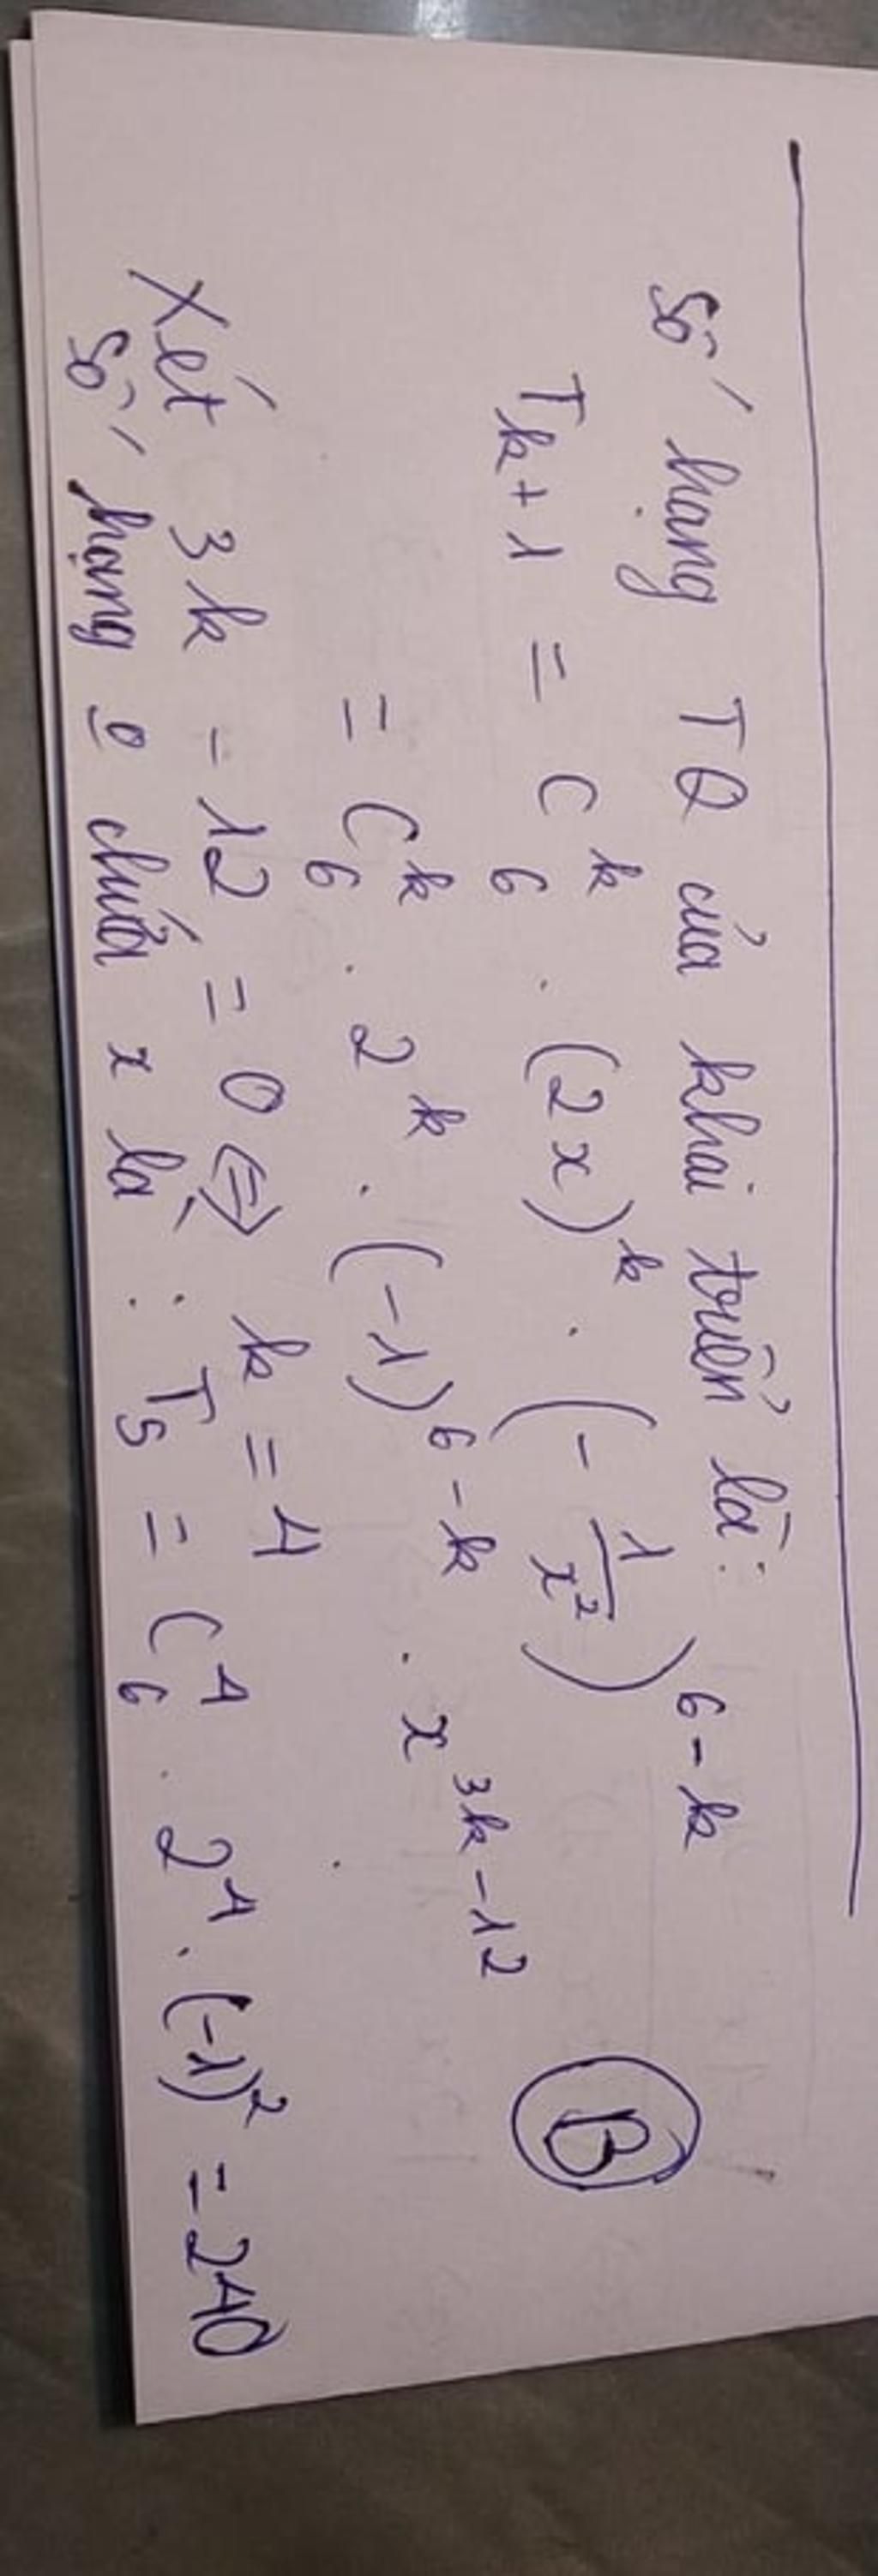 Số hạng TQ của khai triển là:
T_{k+1} = C_6^k . (2x)^k . (- 1/x²)^{6-k}
= C_6^k . 2^k . (-1)^{6-k} . x^{3k-12}
B
Xét 3k - 12 = 0 ⇔ k = 4
Số hạng o chứa x là : T_5 = C_6^4 . 2^4 . (-1)² = 240